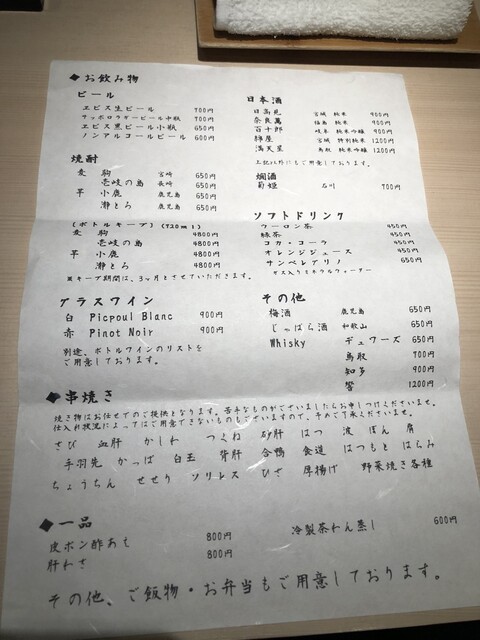 ◆お飲み物
ビール
ヱビス生ビール 700円
サッポロラガービール中瓶 700円
ヱビス黒ビール小瓶 650円
ノンアルコールビール 600円
焼酎
麦 駒 宮崎 650円
壱岐の島 長崎 650円
芋 小鹿 鹿児島 650円
瀞とろ 鹿児島 650円
(ボトルキープ)(720ml)
麦 駒 4800円
壱岐の島 4800円
芋 小鹿 4800円
瀞とろ 4800円
※キープ期間は、3ヶ月とさせていただきます。
グラスワイン
白 Picpoul Blanc 900円
赤 Pinot Noir 900円
別途、ボトルワインのリストを
ご用意しております。
日本酒
日高見 宮城 純米 900円
奈良萬 福島 純米 900円
百十郎 岐阜 純米吟醸 900円
綿屋 宮城 特別純米 1200円
満天星 鳥取 純米吟醸 1200円
上記以外にもご用意しております。
燗酒
菊姫 石川 700円
ソフトドリンク
ウーロン茶 450円
緑茶 450円
コカ・コーラ 450円
オレンジジュース 450円
サンペレグリノ 650円
ガス入りミネラルウォーター
その他
梅酒 鹿児島 650円
じゃばら酒 和歌山 650円
Whisky デュワーズ 650円
鳥取 700円
知多 900円
響 1200円
◆串焼き
焼き物はお任せでのご提供となります。苦手なものがございましたらお申しつけくださいませ。
仕入れ状況によってはご用意できないものもございますので、予めご了承くださいませ。
さび 血肝 かしわ つくね 砂肝 はつ 波 ぼん 肩
手羽先 かっぱ 白玉 背肝 合鴨 食道 はつもと はらみ
ちょうちん せせり ソリレス ひざ 厚揚げ 野菜焼き各種
◆一品
皮ポン酢あえ 800円
肝わさ 800円
冷製茶わん蒸し 600円
その他、ご飯物・お弁当もご用意しております。